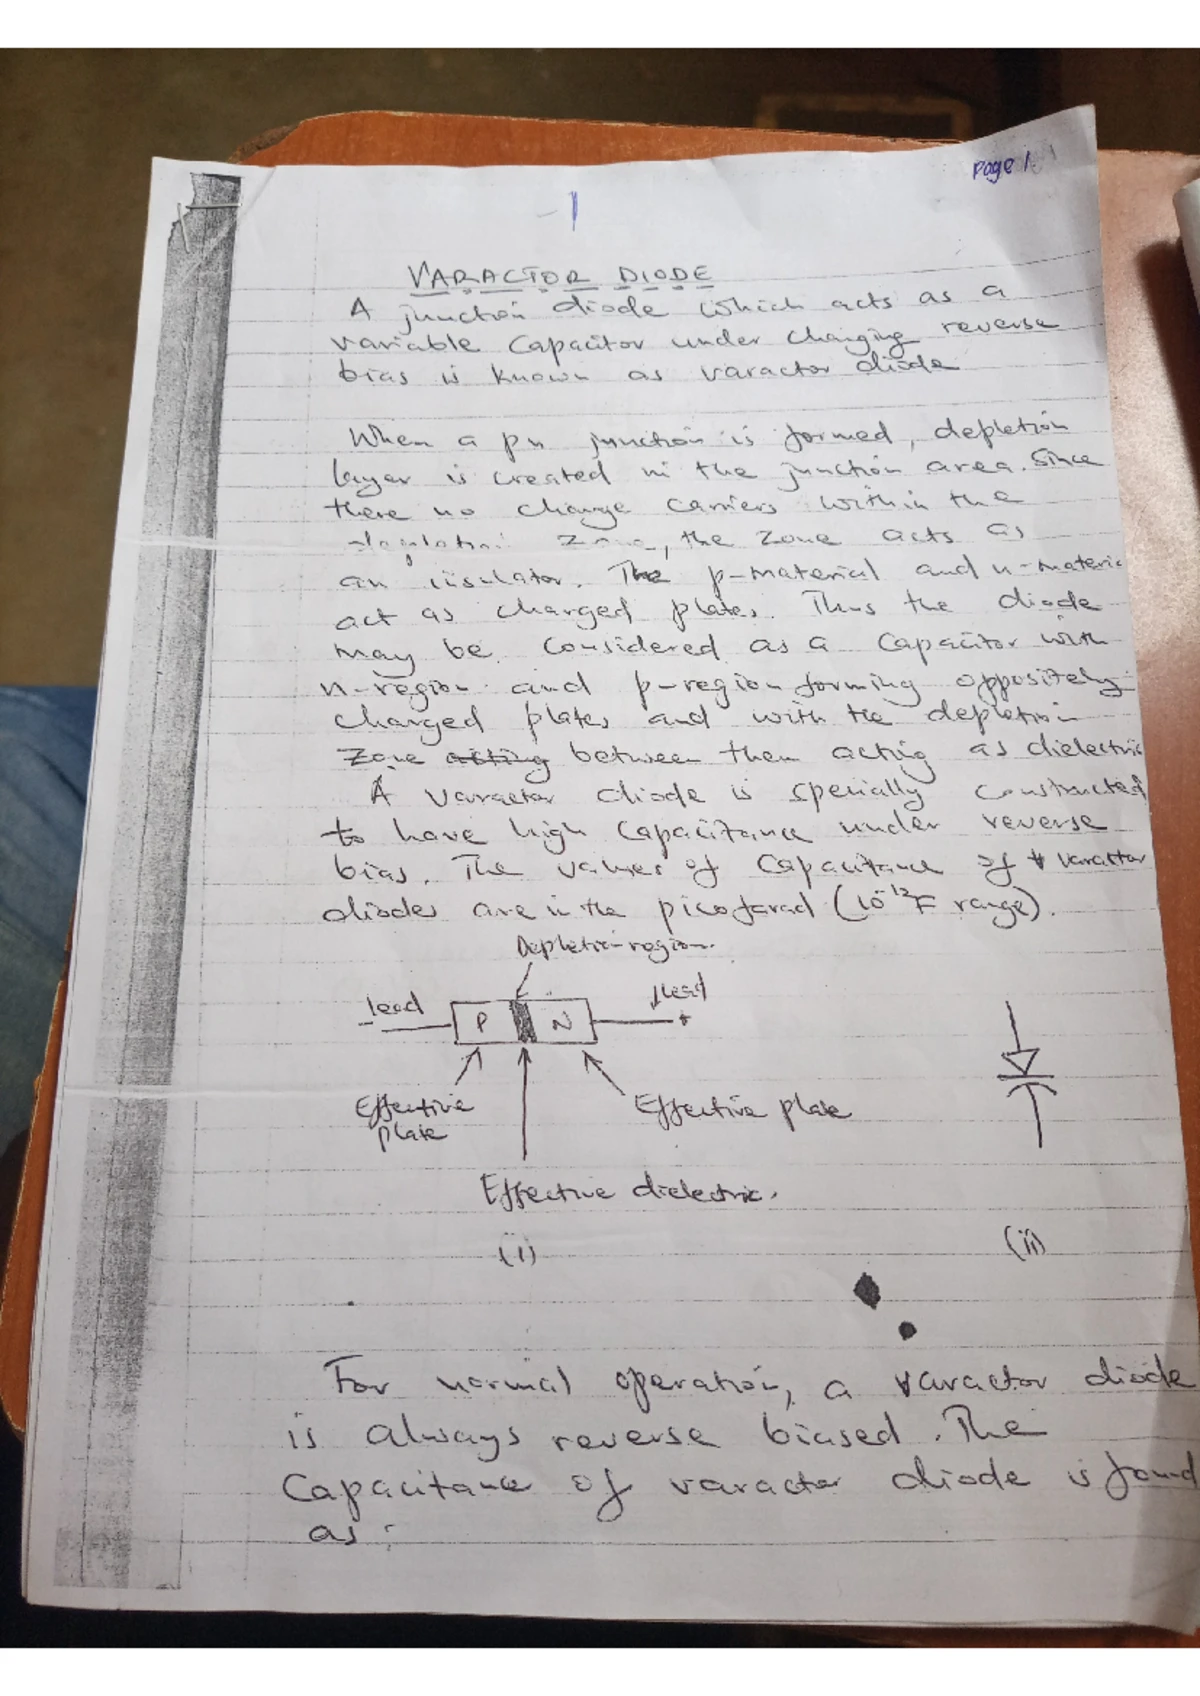 page 1
1
VARACTOR DIODE
A junction diode which acts as a
variable capacitor under changing reverse
bias is known as varactor diode
When a pn junction is formed, depletion
layer is created in the junction area. Since
there no charge carriers within the
depletion zone, the zone acts as
an insulator. The p-material and n-materia
act as charged plates. Thus the diode
may be considered as a capacitor with
n-region and p-region forming oppositely
charged plates and with the depletion
zone acting between them acting as dielectric
A varactor diode is specially constructed
to have high capacitance under reverse
bias. The values of capacitance of varactor
diodes are in the picofarad (10⁻¹²F range).
Depletion region.
lead
lead
P
N
-
+
Effective
plate
Effective plate
Effective dielectric.
(i)
(ii)
For normal operation, a varactor diode
is always reverse biased. The
Capacitance of varactor diode is found
as: